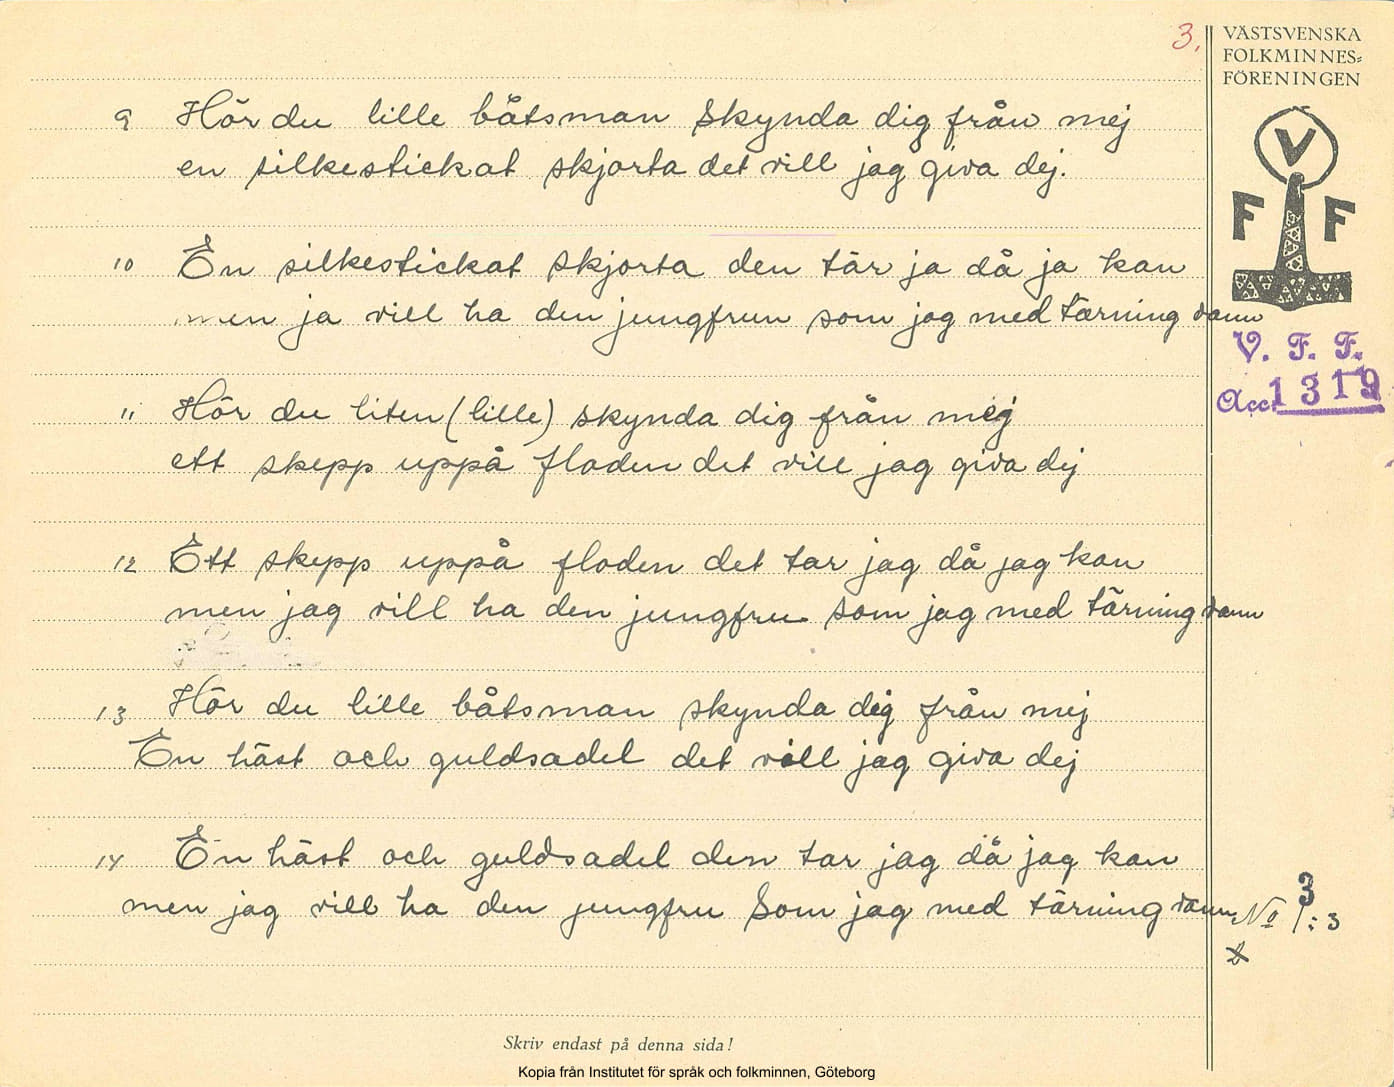 3.
VÄSTSVENSKA
FOLKMINNES=
FÖRENINGEN
V
F F
V. F. F.
Acc. 1319
9 Hör du lille båtsman skynda dig från mej
en silkestickat skjorta det vill jag giva dej.
10 En silkestickat skjorta den tär ja då ja kan
men ja vill ha den jungfrun som jag med tärning vann
11 Hör du liten (lille) skynda dig från mej
ett skepp uppå floden det vill jag giva dej
12 Ett skepp uppå floden det tar jag då jag kan
men jag vill ha den jungfru som jag med tärning vann
13 Hör du lille båtsman skynda dig från mej
En häst och guldsadel det vill jag giva dej
14 En häst och guldsadel den tar jag då jag kan
men jag vill ha den jungfru Som jag med tärning vann
No 3
1:3
Skriv endast på denna sida!
Kopia från Institutet för språk och folkminnen, Göteborg